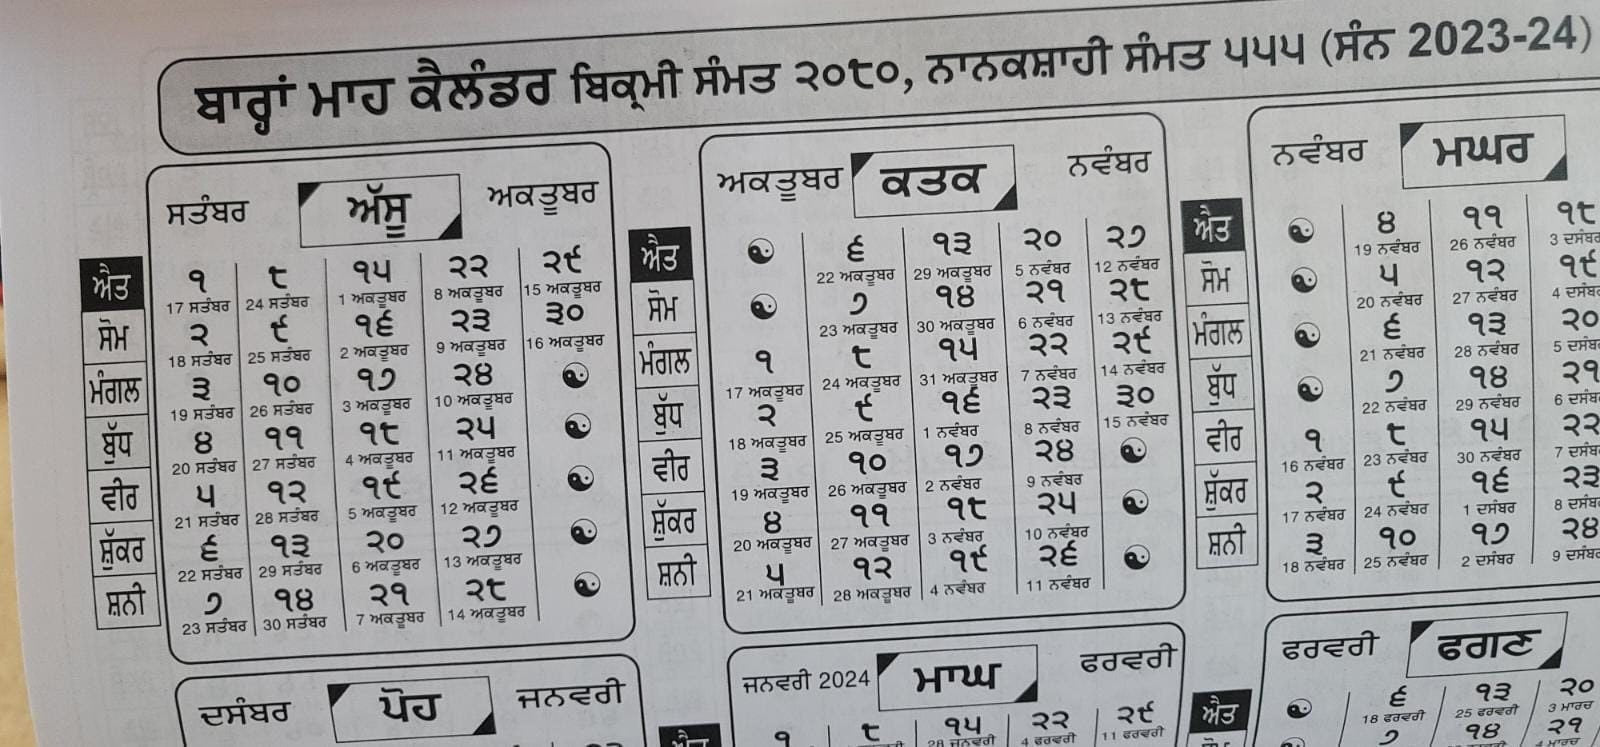 ਬਾਰ੍ਹਾਂ ਮਾਹ ਕੈਲੰਡਰ ਬਿਕ੍ਰਮੀ ਸੰਮਤ ੨੦੮੦, ਨਾਨਕਸ਼ਾਹੀ ਸੰਮਤ ੫੫੫ (ਸੰਨ 2023-24)
ਸਤੰਬਰ ਅੱਸੂ ਅਕਤੂਬਰ
ਐਤ ੧ ੮ ੧੫ ੨੨ ੨੯
17 ਸਤੰਬਰ 24 ਸਤੰਬਰ 1 ਅਕਤੂਬਰ 8 ਅਕਤੂਬਰ 15 ਅਕਤੂਬਰ
ਸੋਮ ੨ ੯ ੧੬ ੨੩ ੩੦
18 ਸਤੰਬਰ 25 ਸਤੰਬਰ 2 ਅਕਤੂਬਰ 9 ਅਕਤੂਬਰ 16 ਅਕਤੂਬਰ
ਮੰਗਲ ੩ ੧੦ ੧੭ ੨੪
19 ਸਤੰਬਰ 26 ਸਤੰਬਰ 3 ਅਕਤੂਬਰ 10 ਅਕਤੂਬਰ
ਬੁੱਧ ੪ ੧੧ ੧੮ ੨੫
20 ਸਤੰਬਰ 27 ਸਤੰਬਰ 4 ਅਕਤੂਬਰ 11 ਅਕਤੂਬਰ
ਵੀਰ ੫ ੧੨ ੧੯ ੨੬
21 ਸਤੰਬਰ 28 ਸਤੰਬਰ 5 ਅਕਤੂਬਰ 12 ਅਕਤੂਬਰ
ਸ਼ੁੱਕਰ ੬ ੧੩ ੨੦ ੨੭
22 ਸਤੰਬਰ 29 ਸਤੰਬਰ 6 ਅਕਤੂਬਰ 13 ਅਕਤੂਬਰ
ਸ਼ਨੀ ੭ ੧੪ ੨੧ ੨੮
23 ਸਤੰਬਰ 30 ਸਤੰਬਰ 7 ਅਕਤੂਬਰ 14 ਅਕਤੂਬਰ
ਅਕਤੂਬਰ ਕਤਕ ਨਵੰਬਰ
ਐਤ ੬ ੧੩ ੨੦ ੨੭
22 ਅਕਤੂਬਰ 29 ਅਕਤੂਬਰ 5 ਨਵੰਬਰ 12 ਨਵੰਬਰ
ਸੋਮ ੭ ੧੪ ੨੧ ੨੮
23 ਅਕਤੂਬਰ 30 ਅਕਤੂਬਰ 6 ਨਵੰਬਰ 13 ਨਵੰਬਰ
ਮੰਗਲ ੧ ੮ ੧੫ ੨੨ ੨੯
17 ਅਕਤੂਬਰ 24 ਅਕਤੂਬਰ 31 ਅਕਤੂਬਰ 7 ਨਵੰਬਰ 14 ਨਵੰਬਰ
ਬੁੱਧ ੨ ੯ ੧੬ ੨੩ ੩੦
18 ਅਕਤੂਬਰ 25 ਅਕਤੂਬਰ 1 ਨਵੰਬਰ 8 ਨਵੰਬਰ 15 ਨਵੰਬਰ
ਵੀਰ ੩ ੧੦ ੧੭ ੨੪
19 ਅਕਤੂਬਰ 26 ਅਕਤੂਬਰ 2 ਨਵੰਬਰ 9 ਨਵੰਬਰ
ਸ਼ੁੱਕਰ ੪ ੧੧ ੧੮ ੨੫
20 ਅਕਤੂਬਰ 27 ਅਕਤੂਬਰ 3 ਨਵੰਬਰ 10 ਨਵੰਬਰ
ਸ਼ਨੀ ੫ ੧੨ ੧੯ ੨੬
21 ਅਕਤੂਬਰ 28 ਅਕਤੂਬਰ 4 ਨਵੰਬਰ 11 ਨਵੰਬਰ
ਨਵੰਬਰ ਮਘਰ
ਐਤ ੪ ੧੧ ੧੮
19 ਨਵੰਬਰ 26 ਨਵੰਬਰ 3 ਦਸੰਬ
ਸੋਮ ੫ ੧੨ ੧੯
20 ਨਵੰਬਰ 27 ਨਵੰਬਰ 4 ਦਸੰਬ
ਮੰਗਲ ੬ ੧੩ ੨੦
21 ਨਵੰਬਰ 28 ਨਵੰਬਰ 5 ਦਸੰਬ
ਬੁੱਧ ੭ ੧੪ ੨੧
22 ਨਵੰਬਰ 29 ਨਵੰਬਰ 6 ਦਸੰਬ
ਵੀਰ ੧ ੮ ੧੫ ੨੨
16 ਨਵੰਬਰ 23 ਨਵੰਬਰ 30 ਨਵੰਬਰ 7 ਦਸੰਬ
ਸ਼ੁੱਕਰ ੨ ੯ ੧੬ ੨੩
17 ਨਵੰਬਰ 24 ਨਵੰਬਰ 1 ਦਸੰਬਰ 8 ਦਸੰਬ
ਸ਼ਨੀ ੩ ੧੦ ੧੭ ੨੪
18 ਨਵੰਬਰ 25 ਨਵੰਬਰ 2 ਦਸੰਬਰ 9 ਦਸੰਬ
ਦਸੰਬਰ ਪੋਹ ਜਨਵਰੀ
ਜਨਵਰੀ 2024 ਮਾਘ ਫਰਵਰੀ
ਐਤ ੧ ੮ ੧੫ ੨੨ ੨੯
28 ਜਨਵਰੀ 4 ਫਰਵਰੀ 11 ਫਰਵਰੀ
ਫਰਵਰੀ ਫਗਣ
ਐਤ ੬ ੧੩ ੨੦
18 ਫਰਵਰੀ 25 ਫਰਵਰੀ 3 ਮਾਰਚ
੭ ੧੪ ੨੧